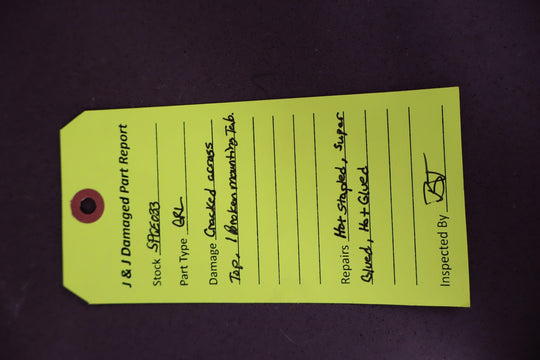 J & J Damaged Part Report
Stock
Part Type GRL
Damage Cracked across
Top, 1 Broken mounting Tab.
Repairs Hot Stapled, Super
Glued, Hot Glued
Inspected By